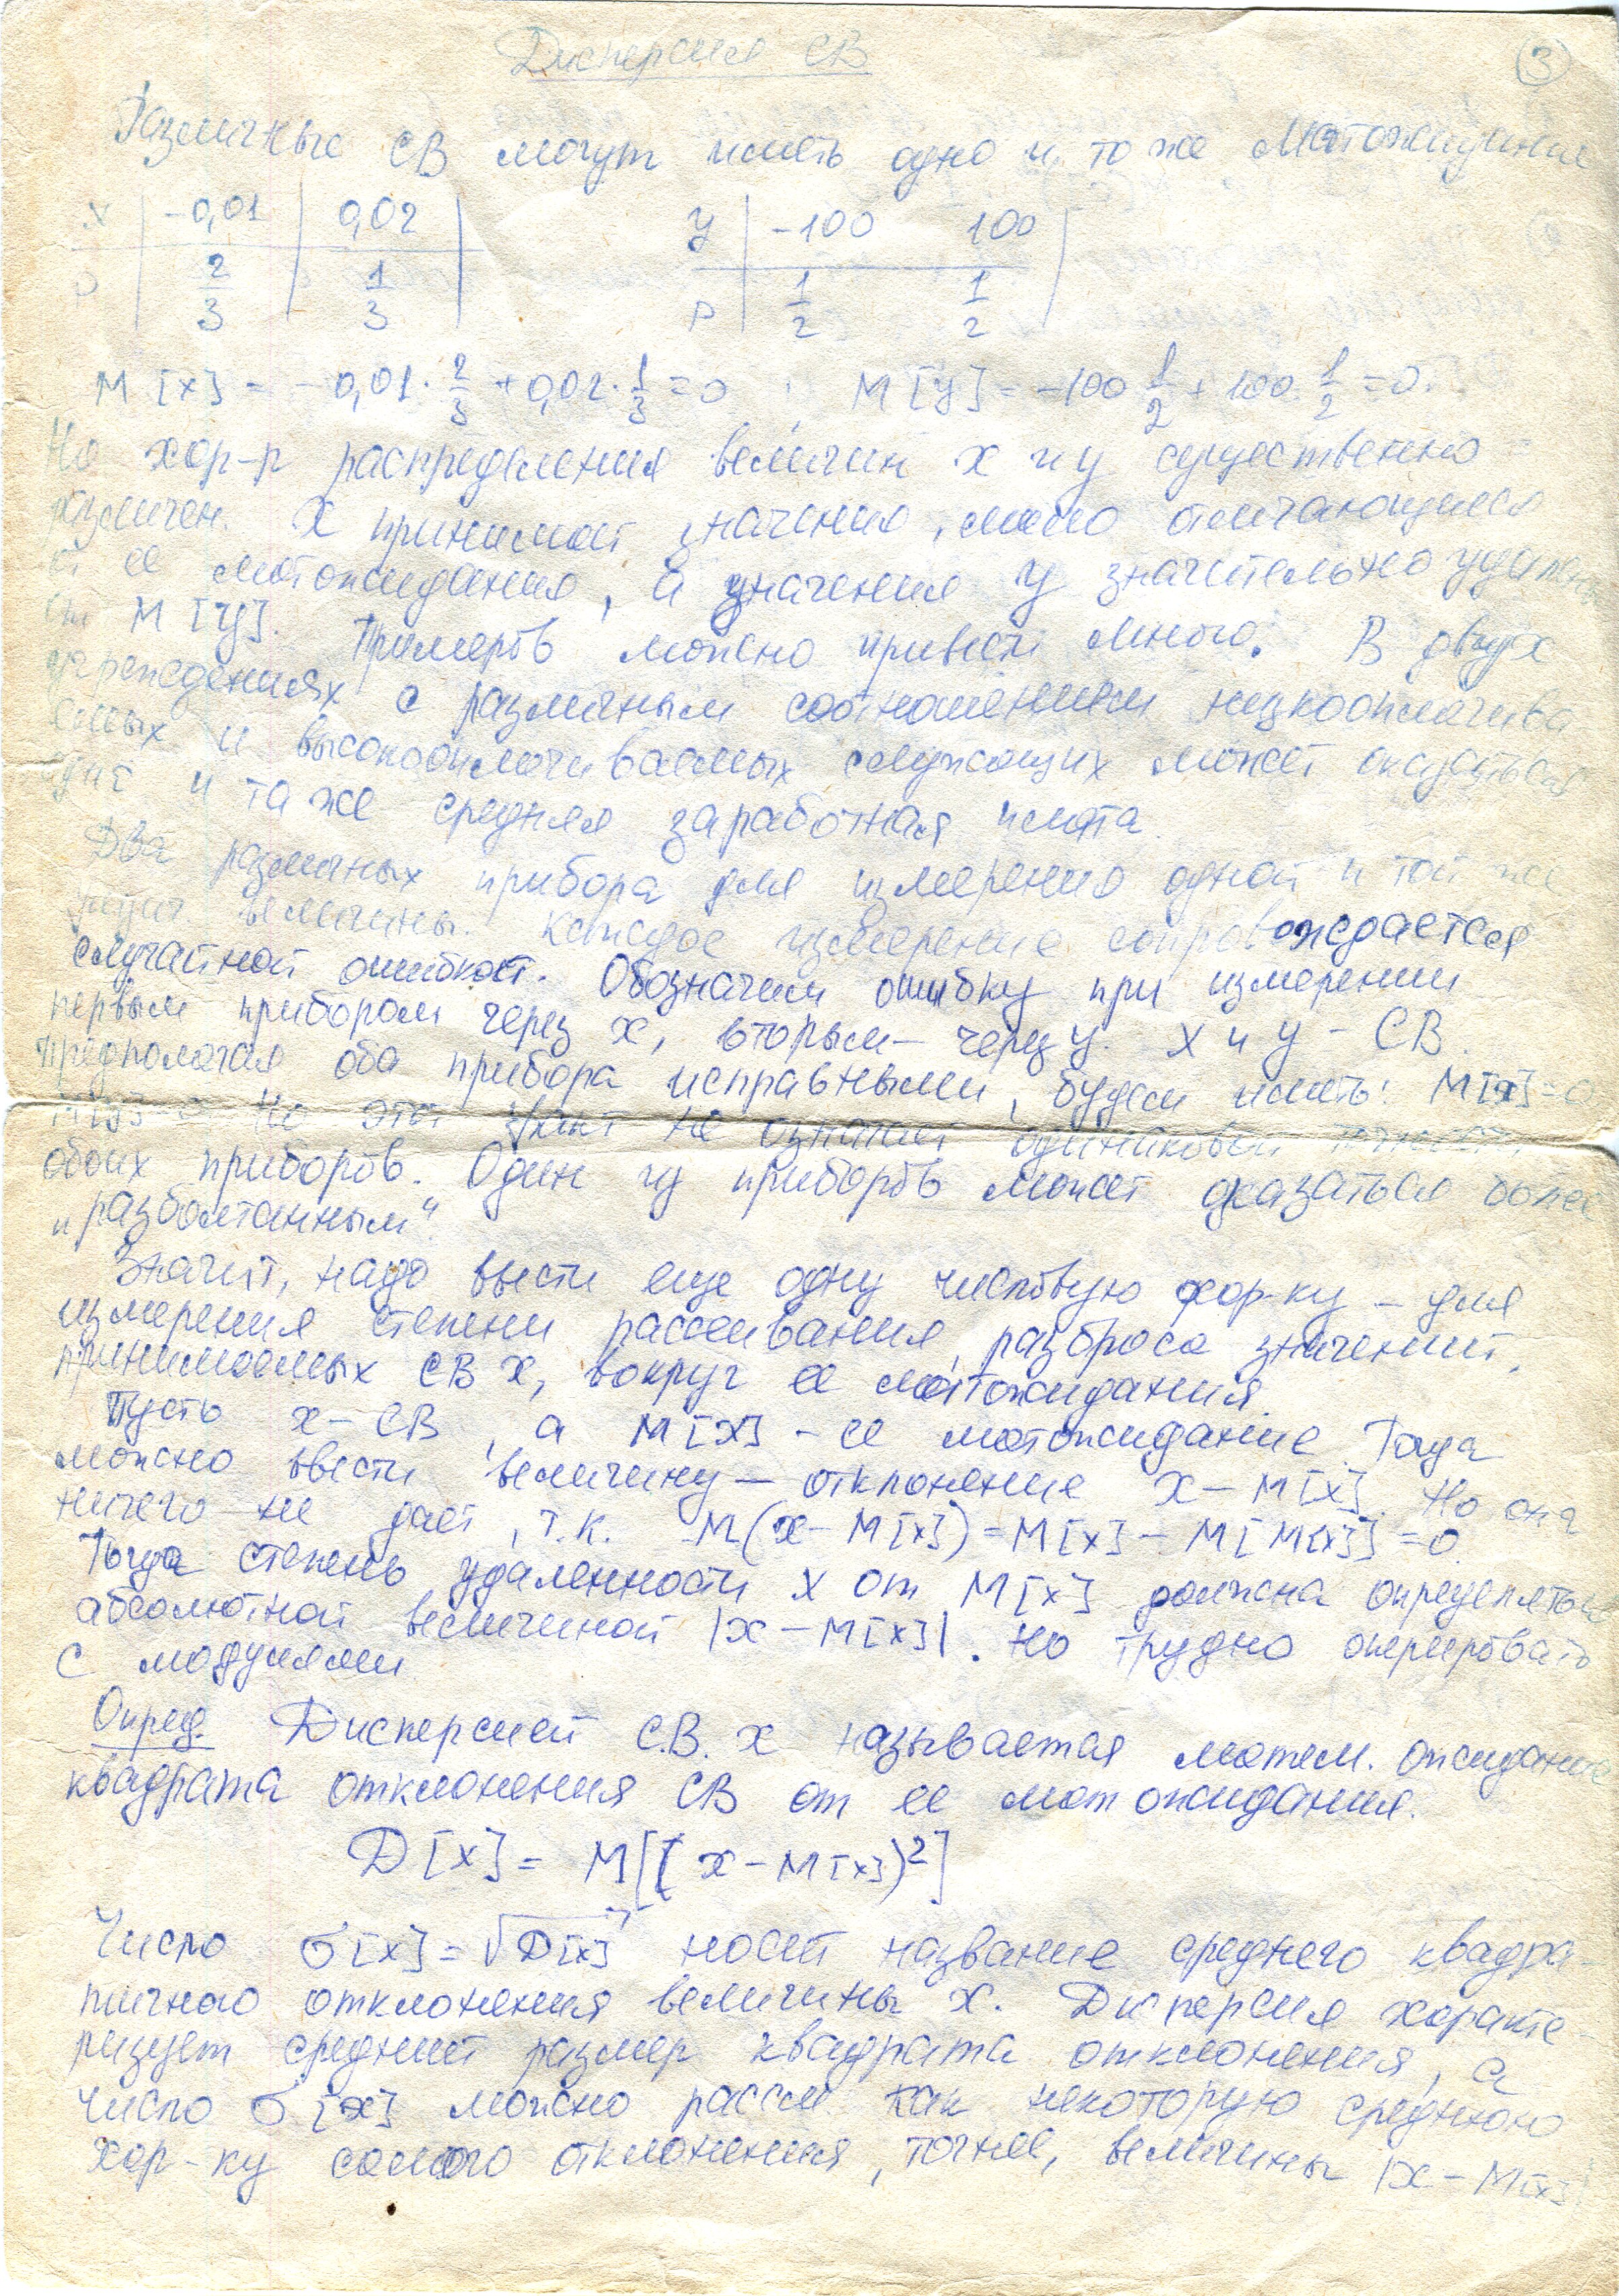 Дисперсия СВ
3
Различные СВ могут иметь одно и то же Матожидание
x | -0,01 | 0,02 |     y | -100   100 |
p | 2/3 | 1/3 |     p | 1/2   1/2 |
M[x] = -0,01·2/3 + 0,02·1/3 = 0 , M[y] = -100 1/2 + 100·1/2 = 0.
Но хар-р распределения величин x и y существенно
различен. X принимает значения, мало отличающиеся
от ее матожидания, а значения y значительно удалены
от M[y]. Примеров можно привести много. В двух
учреждениях с различным соотношением низкооплачива
емых и высокооплачиваемых служащих может оказаться
одна и та же средняя заработная плата.
Два различных прибора для измерения одной и той же
физич. величины. Каждое измерение сопровождается
случайной ошибкой. Обозначим ошибку при измерении
первым прибором через x, вторым – через y. x и y – СВ.
Предполагая оба прибора исправными, будем иметь: M[x]=0
M[y]=0 Но этот факт не означает одинаковой точности
обоих приборов. Один из приборов может оказаться более
„разболтанным“.
Значит, надо ввести еще одну числовую хар-ку – для
измерения степени рассеивания, разброса значений,
принимаемых СВ x, вокруг ее матожидания.
Пусть x – СВ, а M[x] – ее матожидание. Тогда
можно ввести величину – отклонение x – M[x]. Но она
ничего не дает, т.к. M(x – M[x]) = M[x] – M[M[x]] = 0.
Тогда степень удаленности x от M[x] должна определяться
абсолютной величиной |x – M[x]|. Но трудно оперировать
с модулями
Опред. Дисперсией С.В. x называется матем. ожидание
квадрата отклонения СВ от ее матожидания.
D[x] = M[(x – M[x])²]
Число σ[x] = √D[x] носит название среднего квадра-
тичного отклонения величины x. Дисперсия характе-
ризует средний размер квадрата отклонения, а
число σ[x] можно рассм. как некоторую среднюю
хар-ку самого отклонения, точнее, величины |x – M[x]|